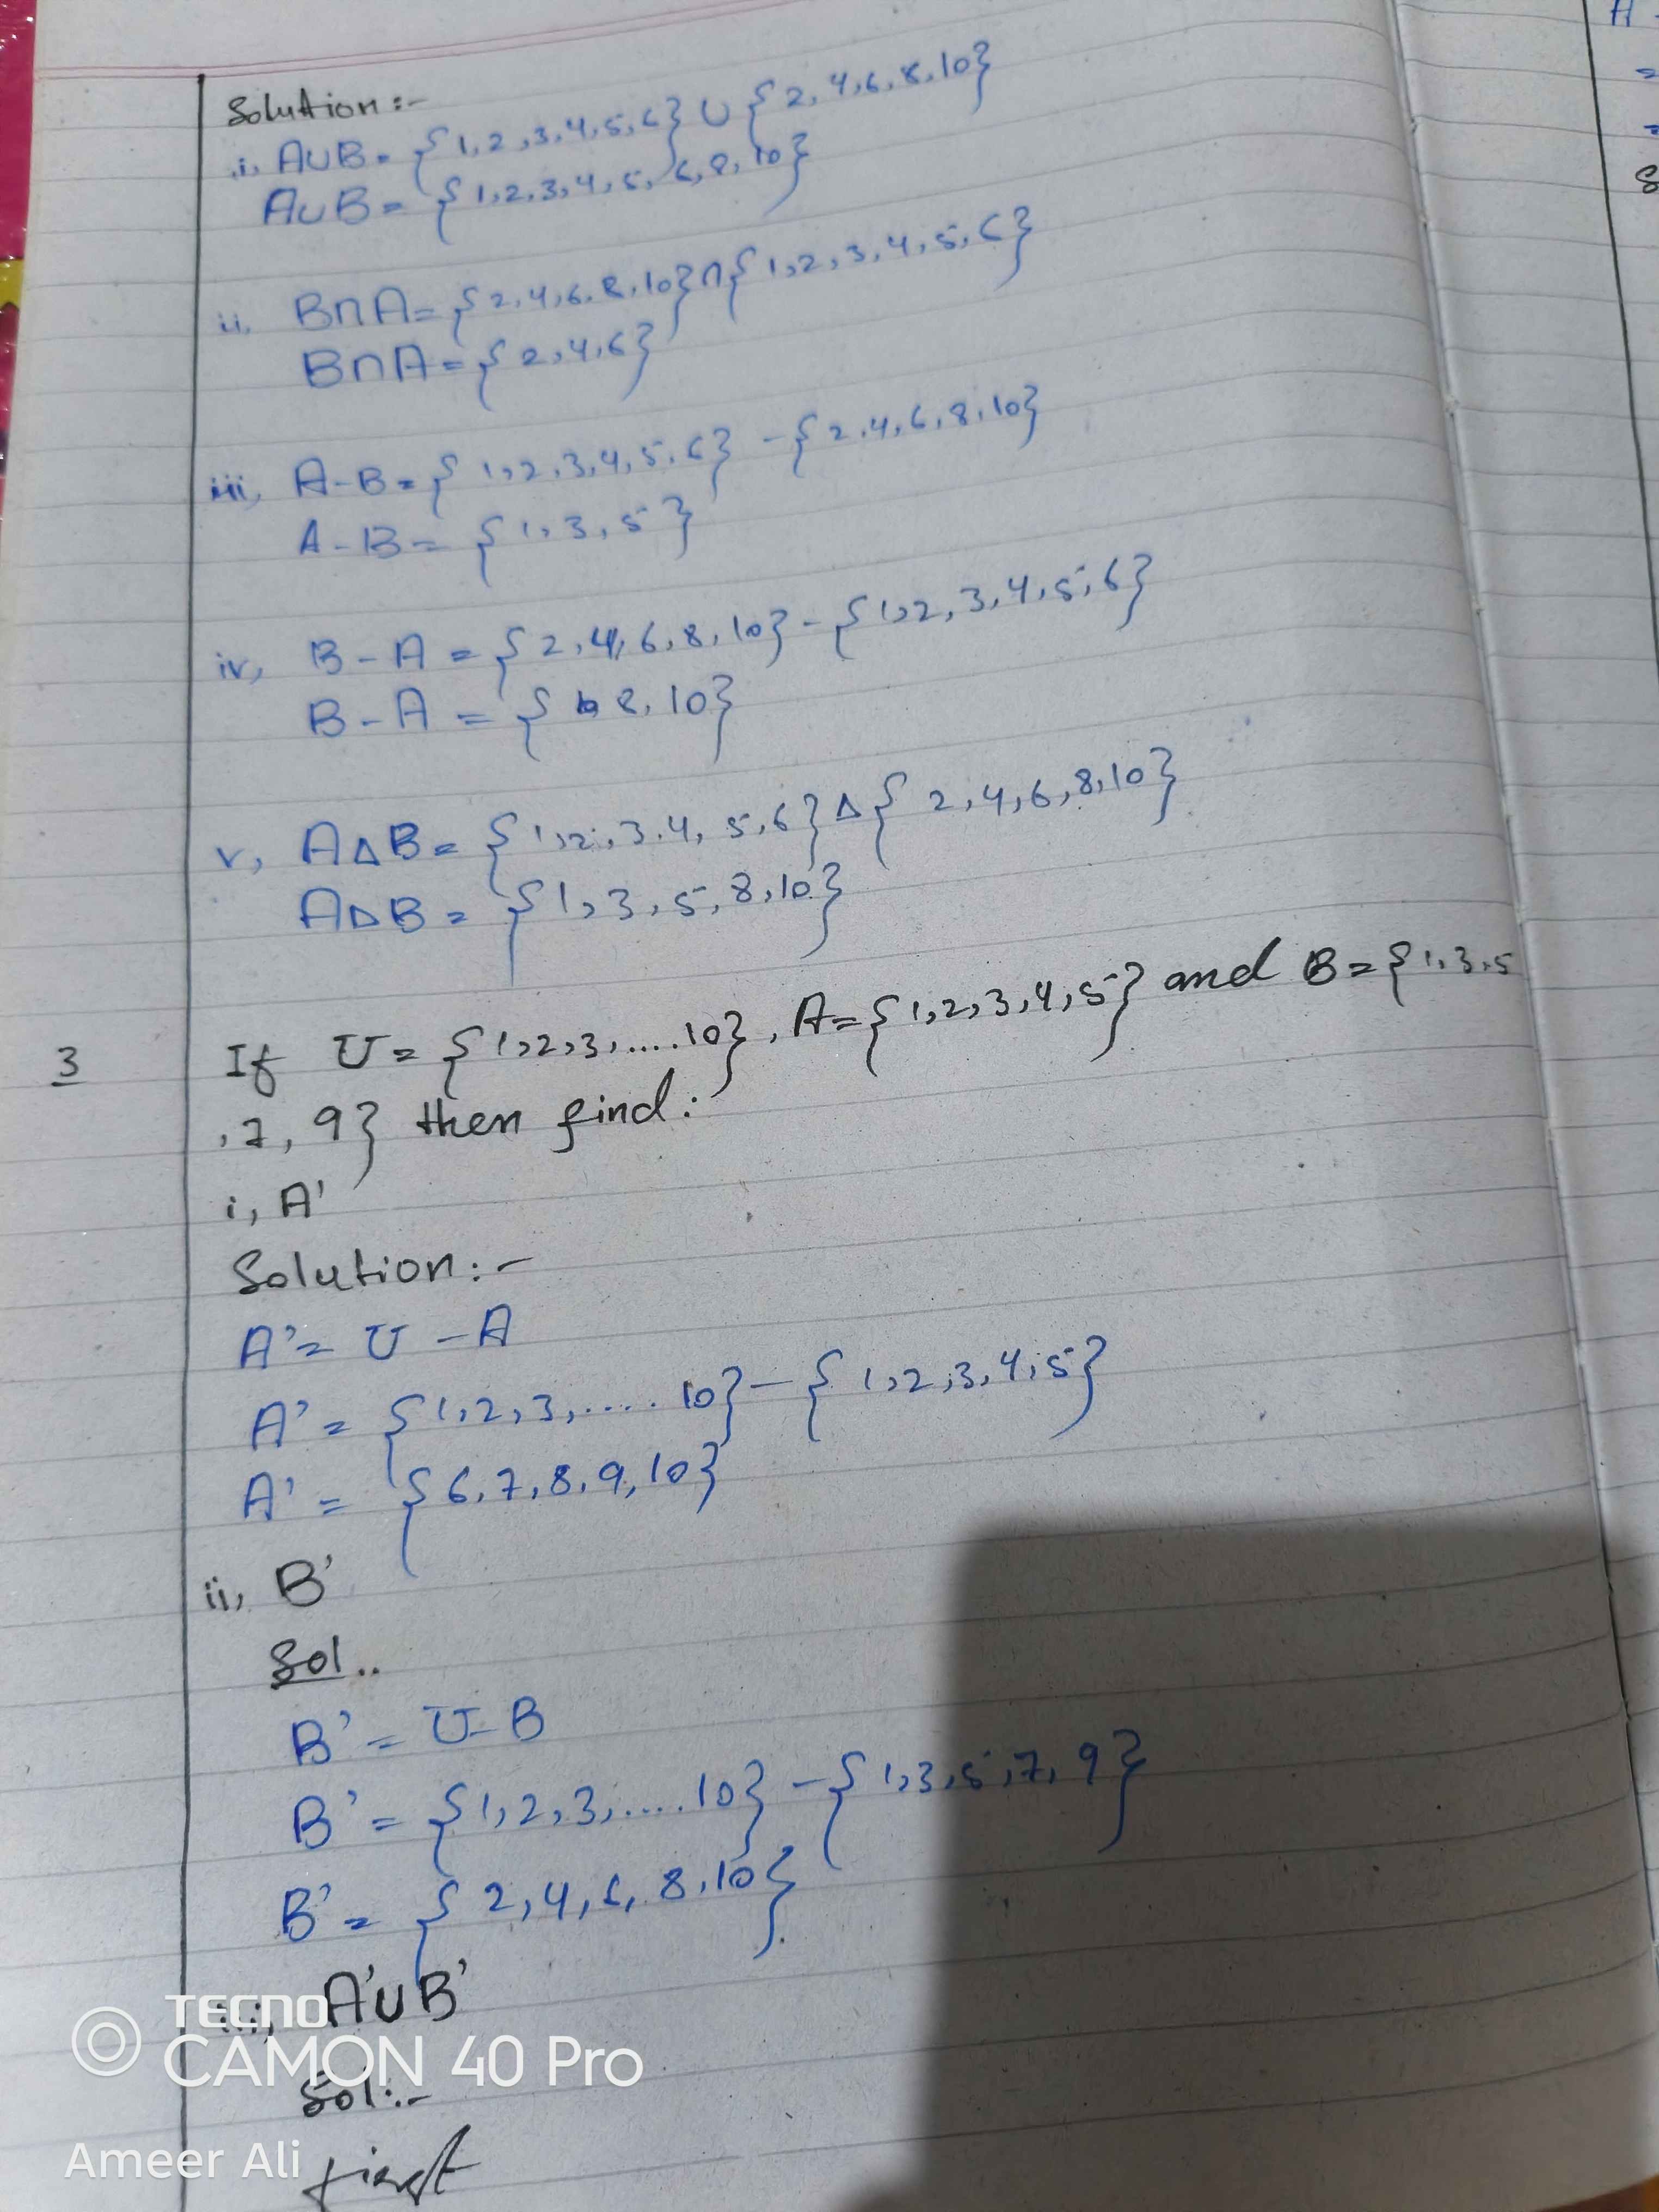 Solution:-
i, A∪B = {1,2,3,4,5,6} ∪ {2,4,6,8,10}
A∪B = {1,2,3,4,5,6,8,10}
ii, B∩A = {2,4,6,8,10} ∩ {1,2,3,4,5,6}
B∩A = {2,4,6}
iii, A-B = {1,2,3,4,5,6} - {2,4,6,8,10}
A-B = {1,3,5}
iv, B-A = {2,4,6,8,10} - {1,2,3,4,5,6}
B-A = {8,10}
v, A△B = {1,2,3,4,5,6} △ {2,4,6,8,10}
A△B = {1,3,5,8,10}
3 If U = {1,2,3,....10}, A={1,2,3,4,5} and B={1,3,5
,7,9} then find:
i, A'
Solution:-
A' = U - A
A' = {1,2,3,.....10} - {1,2,3,4,5}
A' = {6,7,8,9,10}
ii, B'
Sol..
B' = U-B
B' = {1,2,3,....10} - {1,3,5,7,9}
B' = {2,4,6,8,10}
iii, A'∪B'
Sol:-
first
TECNO
CAMON 40 Pro
Ameer Ali
A
=
=
S